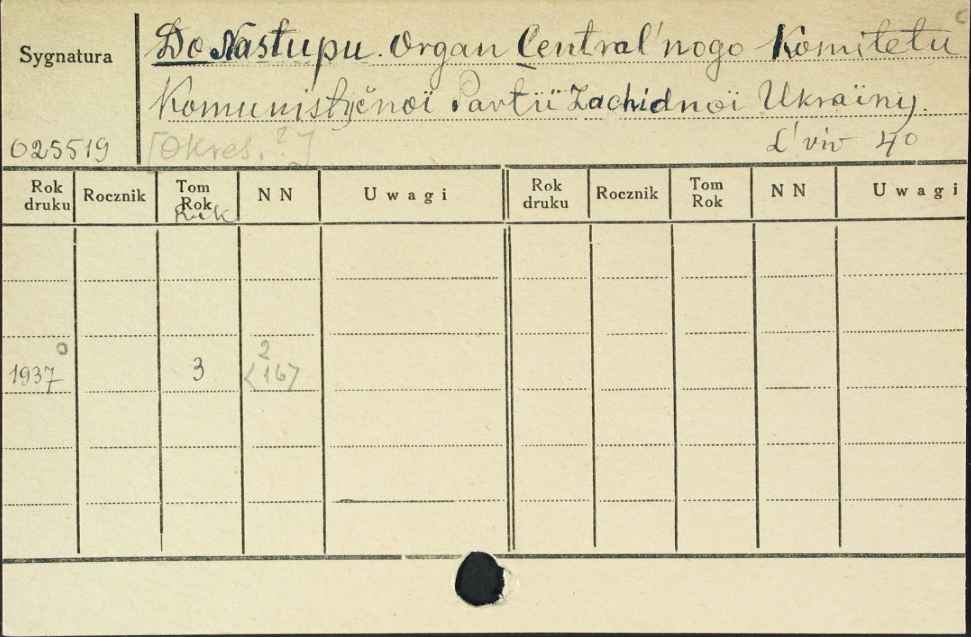 c
Sygnatura
Do Nastupu. Organ Central'nogo Komitetu
Komunistyčnoï Partiï Zachidnoï Ukraïny.
025519 [Okres. ?] L'viv 4°
Rok druku Rocznik Tom Rok NN Uwagi Rok druku Rocznik Tom Rok NN Uwagi
Rik
1937 o 3 2 <16>